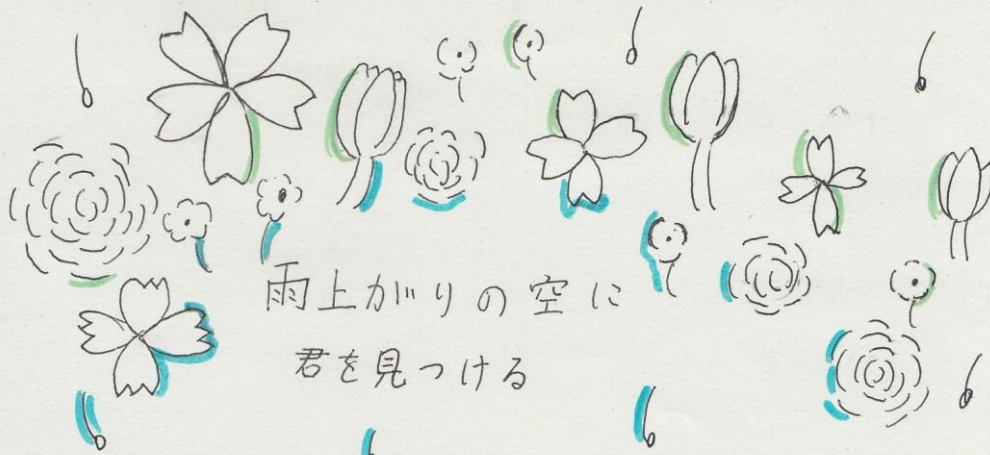 雨上がりの空に
君を見つける